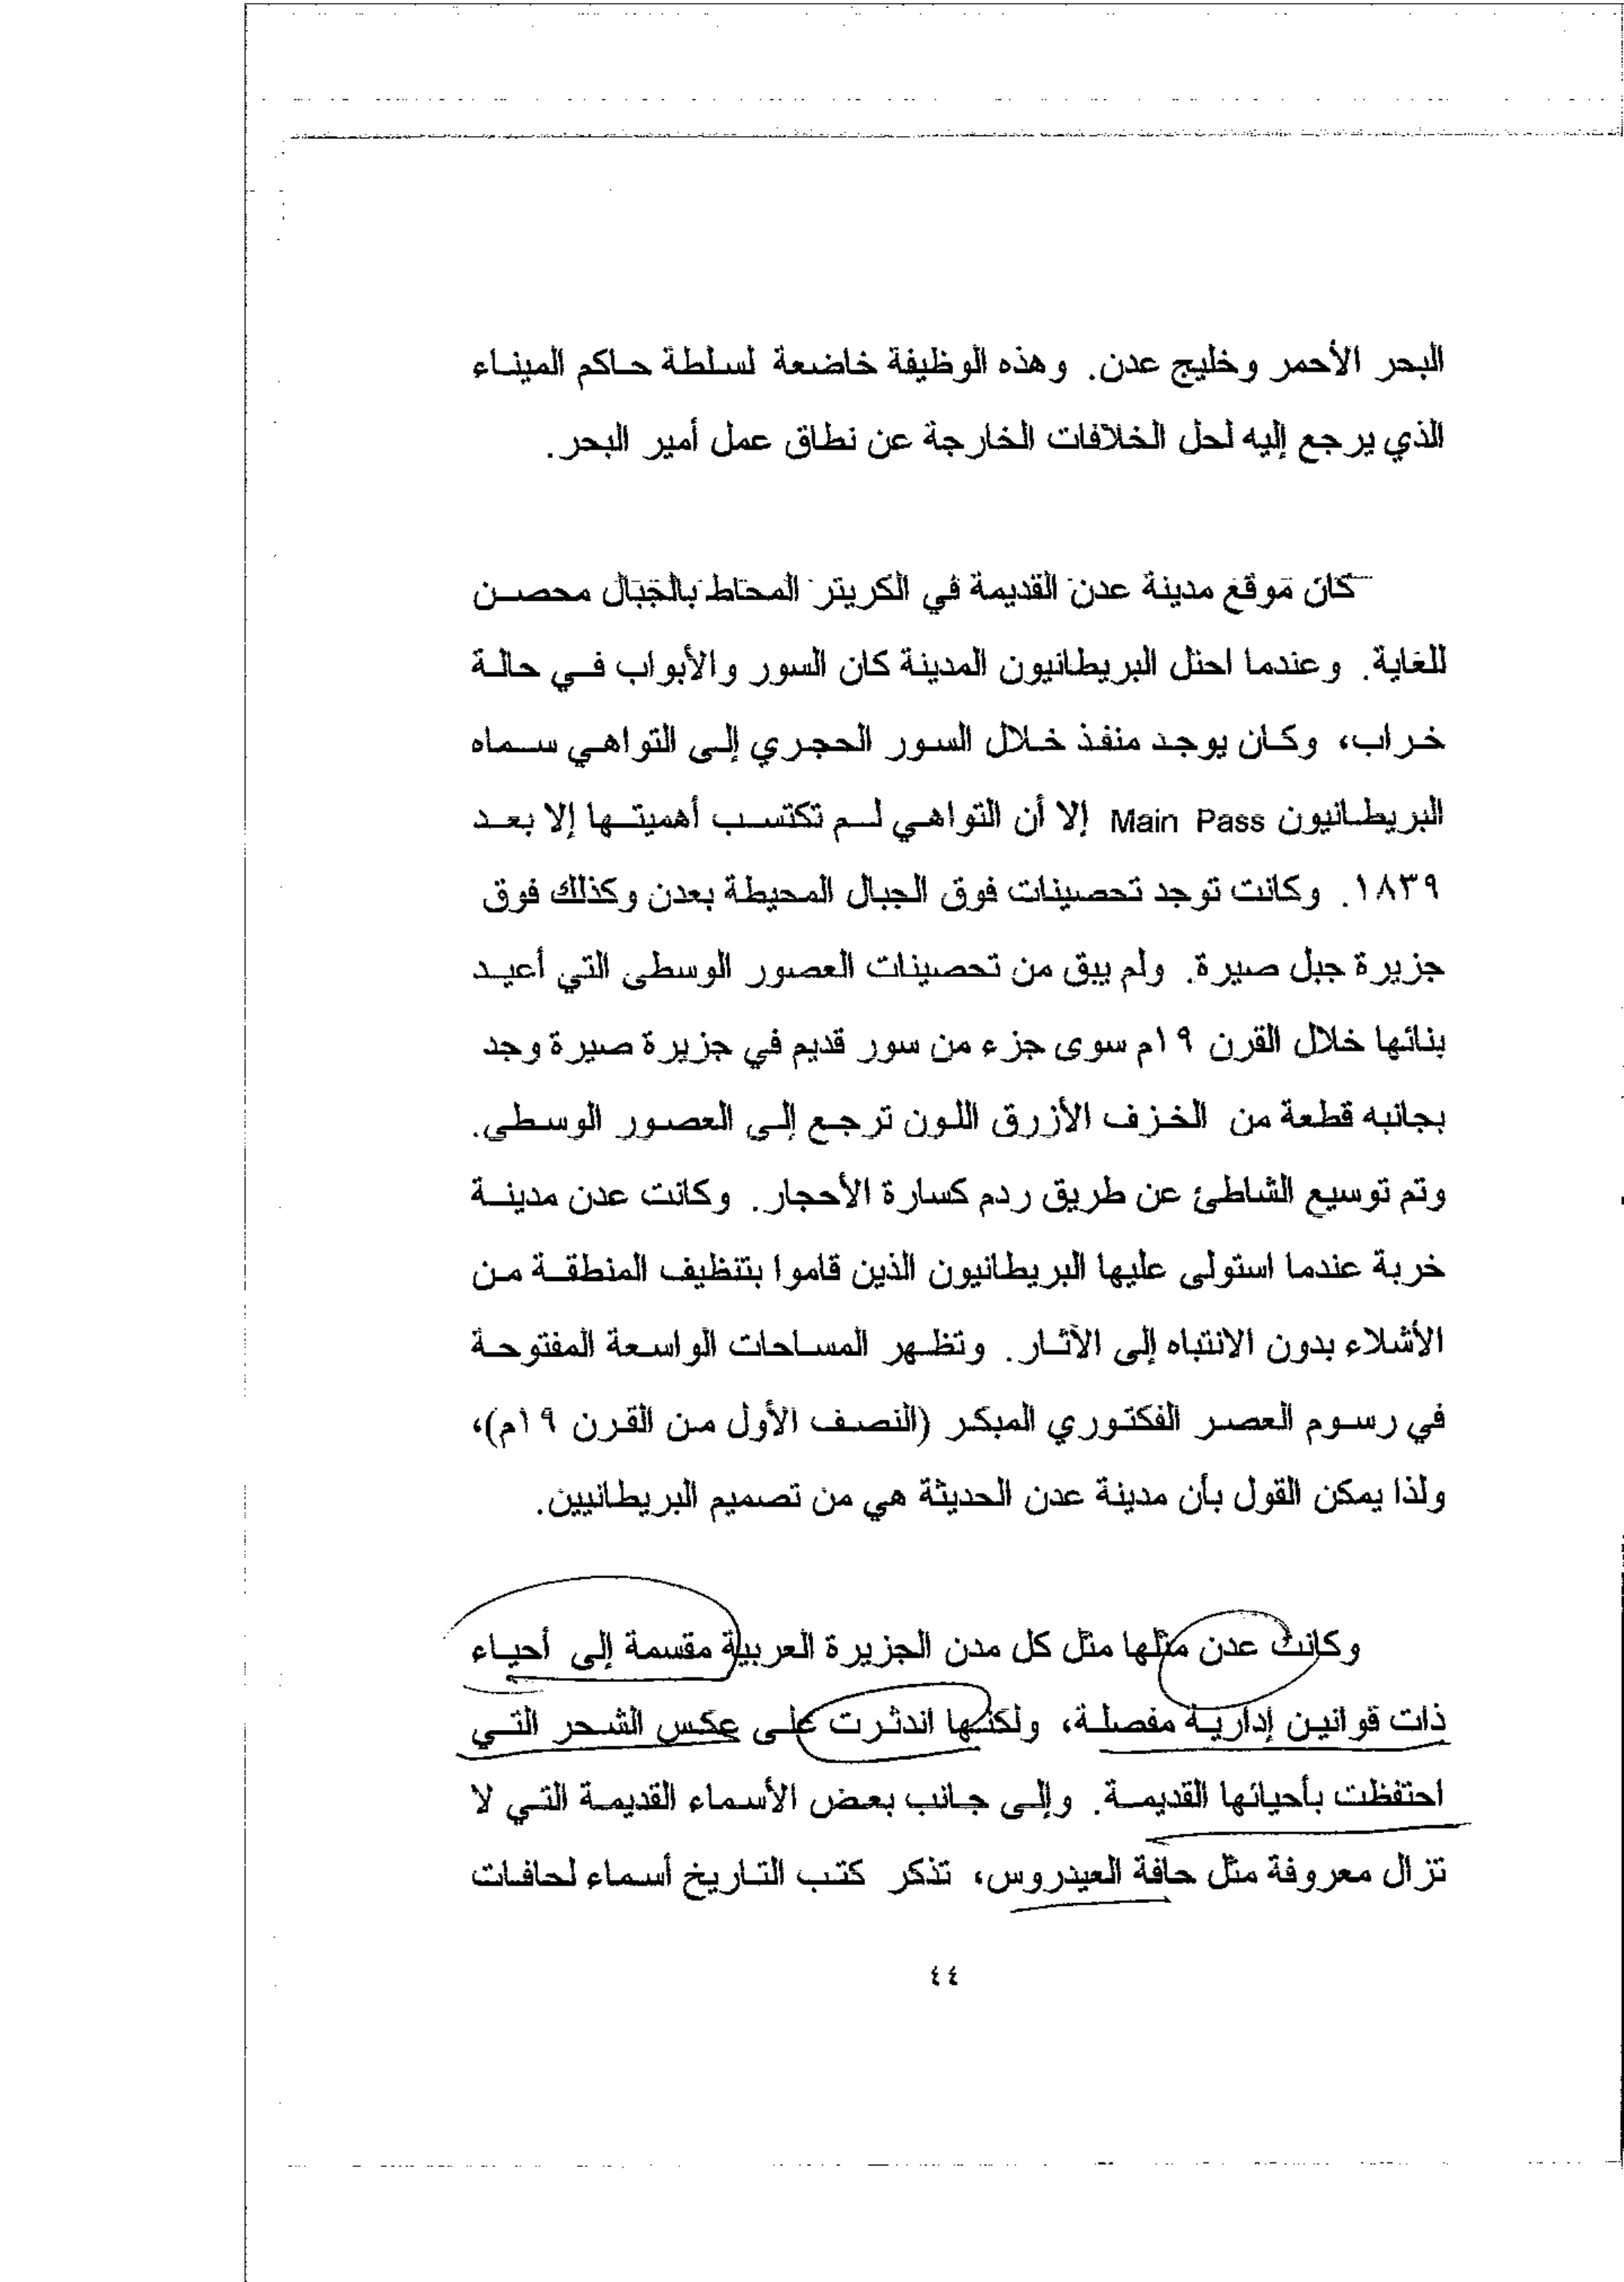 البحر الأحمر وخليج عدن. وهذه الوظيفة خاضعة لسلطة حاكم الميناء
الذي يرجع إليه لحل الخلافات الخارجة عن نطاق عمل أمير البحر.
كان موقع مدينة عدن القديمة في الكريتر المحاط بالجبال محصن
للغاية. وعندما احتل البريطانيون المدينة كان السور والأبواب في حالة
خراب، وكان يوجد منفذ خلال السور الحجري إلى التواهي سماه
البريطانيون Main Pass إلا أن التواهي لم تكتسب أهميتها إلا بعد
١٨٣٩. وكانت توجد تحصينات فوق الجبال المحيطة بعدن وكذلك فوق
جزيرة جبل صيرة. ولم يبق من تحصينات العصور الوسطى التي أعيد
بنائها خلال القرن ١٩م سوى جزء من سور قديم في جزيرة صيرة وجد
بجانبه قطعة من الخزف الأزرق اللون ترجع إلى العصور الوسطى.
وتم توسيع الشاطئ عن طريق ردم كسارة الأحجار. وكانت عدن مدينة
خربة عندما استولى عليها البريطانيون الذين قاموا بتنظيف المنطقة من
الأشلاء بدون الانتباه إلى الآثار. وتظهر المساحات الواسعة المفتوحة
في رسوم العصر الفكتوري المبكر (النصف الأول من القرن ١٩م)،
ولذا يمكن القول بأن مدينة عدن الحديثة هي من تصميم البريطانيين.
وكانت عدن مثلها مثل كل مدن الجزيرة العربية مقسمة إلى أحياء
ذات قوانين إدارية مفصلة، ولكنها اندثرت على عكس الشحر التي
احتفظت بأحيائها القديمة. وإلى جانب بعض الأسماء القديمة التي لا
تزال معروفة مثل حافة العيدروس، تذكر كتب التاريخ أسماء لحافات
٤٤